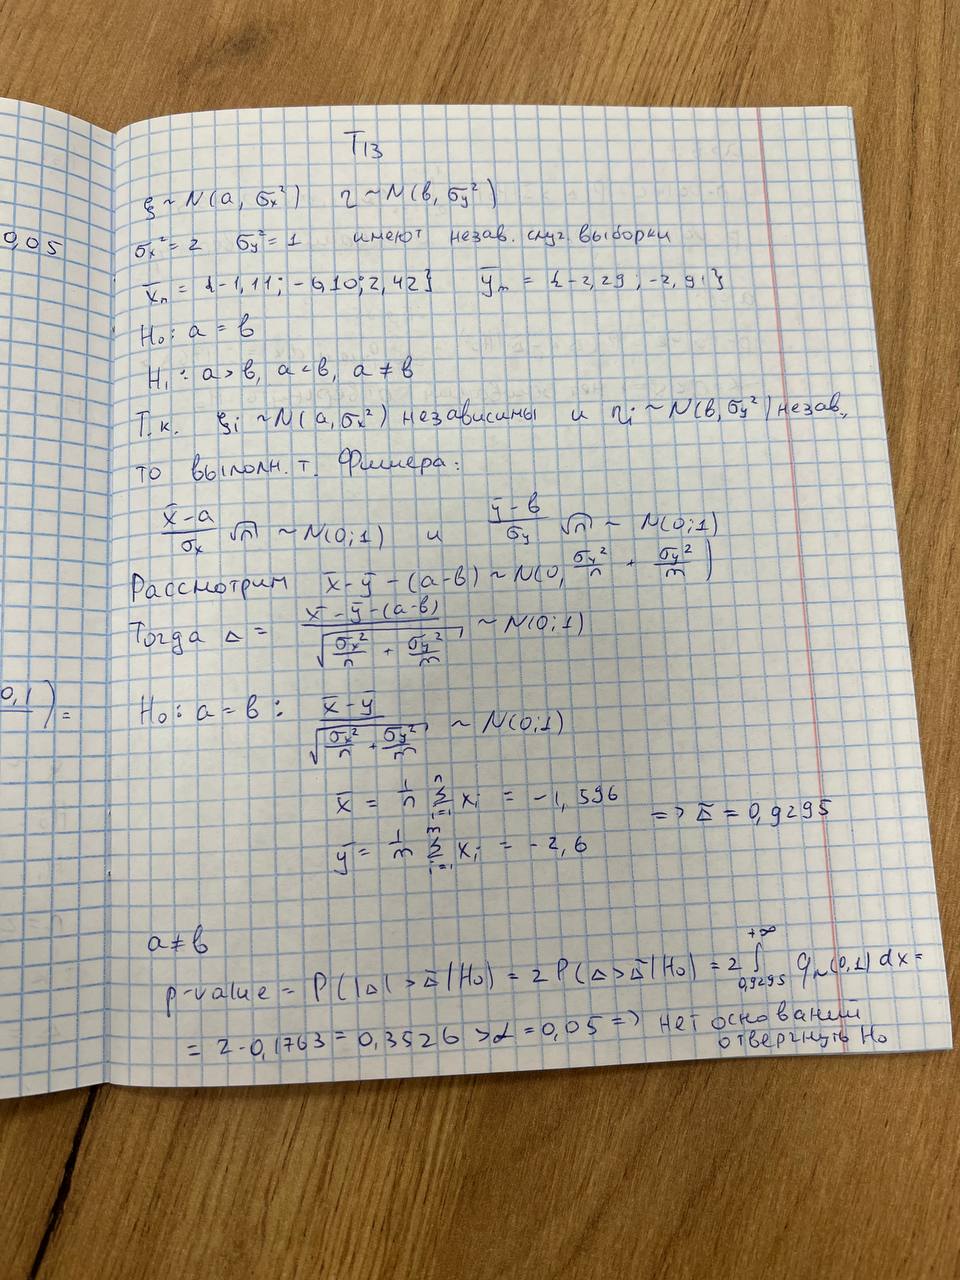 0,05
0,1) =
T13
ξ ~ N(a, σx²) η ~ N(в, σy²)
σx² = 2 σy² = 1 имеют незав. случ. выборки
x̄n = {-1,11; -6,10; 2,42} ȳm = {-2,29; -2,91}
H₀: a = в
H₁: a > в, a < в, a ≠ в
Т.к. ξi ~ N(a, σx²) независимы и ηi ~ N(в, σy²) незав.,
то выполн. т. Фишера:
(x̄-a)/σx √n ~ N(0;1) и (ȳ-в)/σy √n ~ N(0;1)
Рассмотрим x̄-ȳ-(a-в) ~ N(0, σy²/n + σy²/m)
Тогда Δ = (x̄-ȳ-(a-в))/√(σx²/n + σy²/m) ~ N(0;1)
H₀: a = в: (x̄-ȳ)/√(σx²/n + σy²/m) ~ N(0;1)
x̄ = 1/n Σ(i=1..n) xi = -1,596
=> Δ̃ = 0,9295
ȳ = 1/m Σ(i=1..m) xi = -2,6
a ≠ в
p-value = P(|Δ| > Δ̃ | H₀) = 2 P(Δ > Δ̃ | H₀) = 2 ∫(0,9295..+∞) qN(0,1) dx =
= 2·0,1763 = 0,3526 > α = 0,05 => нет оснований
отвергнуть H₀